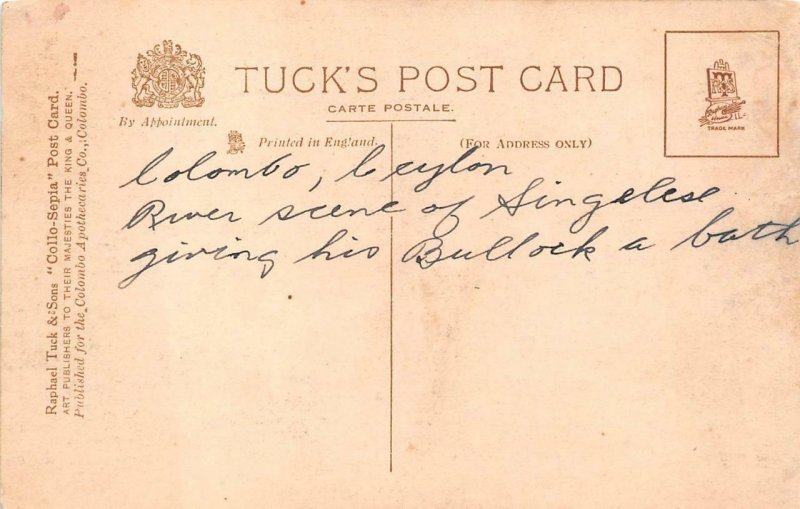 TUCK'S POST CARD
CARTE POSTALE.
By Appointment.
Printed in England.
(FOR ADDRESS ONLY)
TRADE MARK
Colombo, Ceylon
River scene of Singelese
giving his Bullock a bath
Raphael Tuck & Sons "Collo-Sepia" Post Card.
ART PUBLISHERS TO THEIR MAJESTIES THE KING & QUEEN.
Published for the Colombo Apothecaries Co., Colombo.